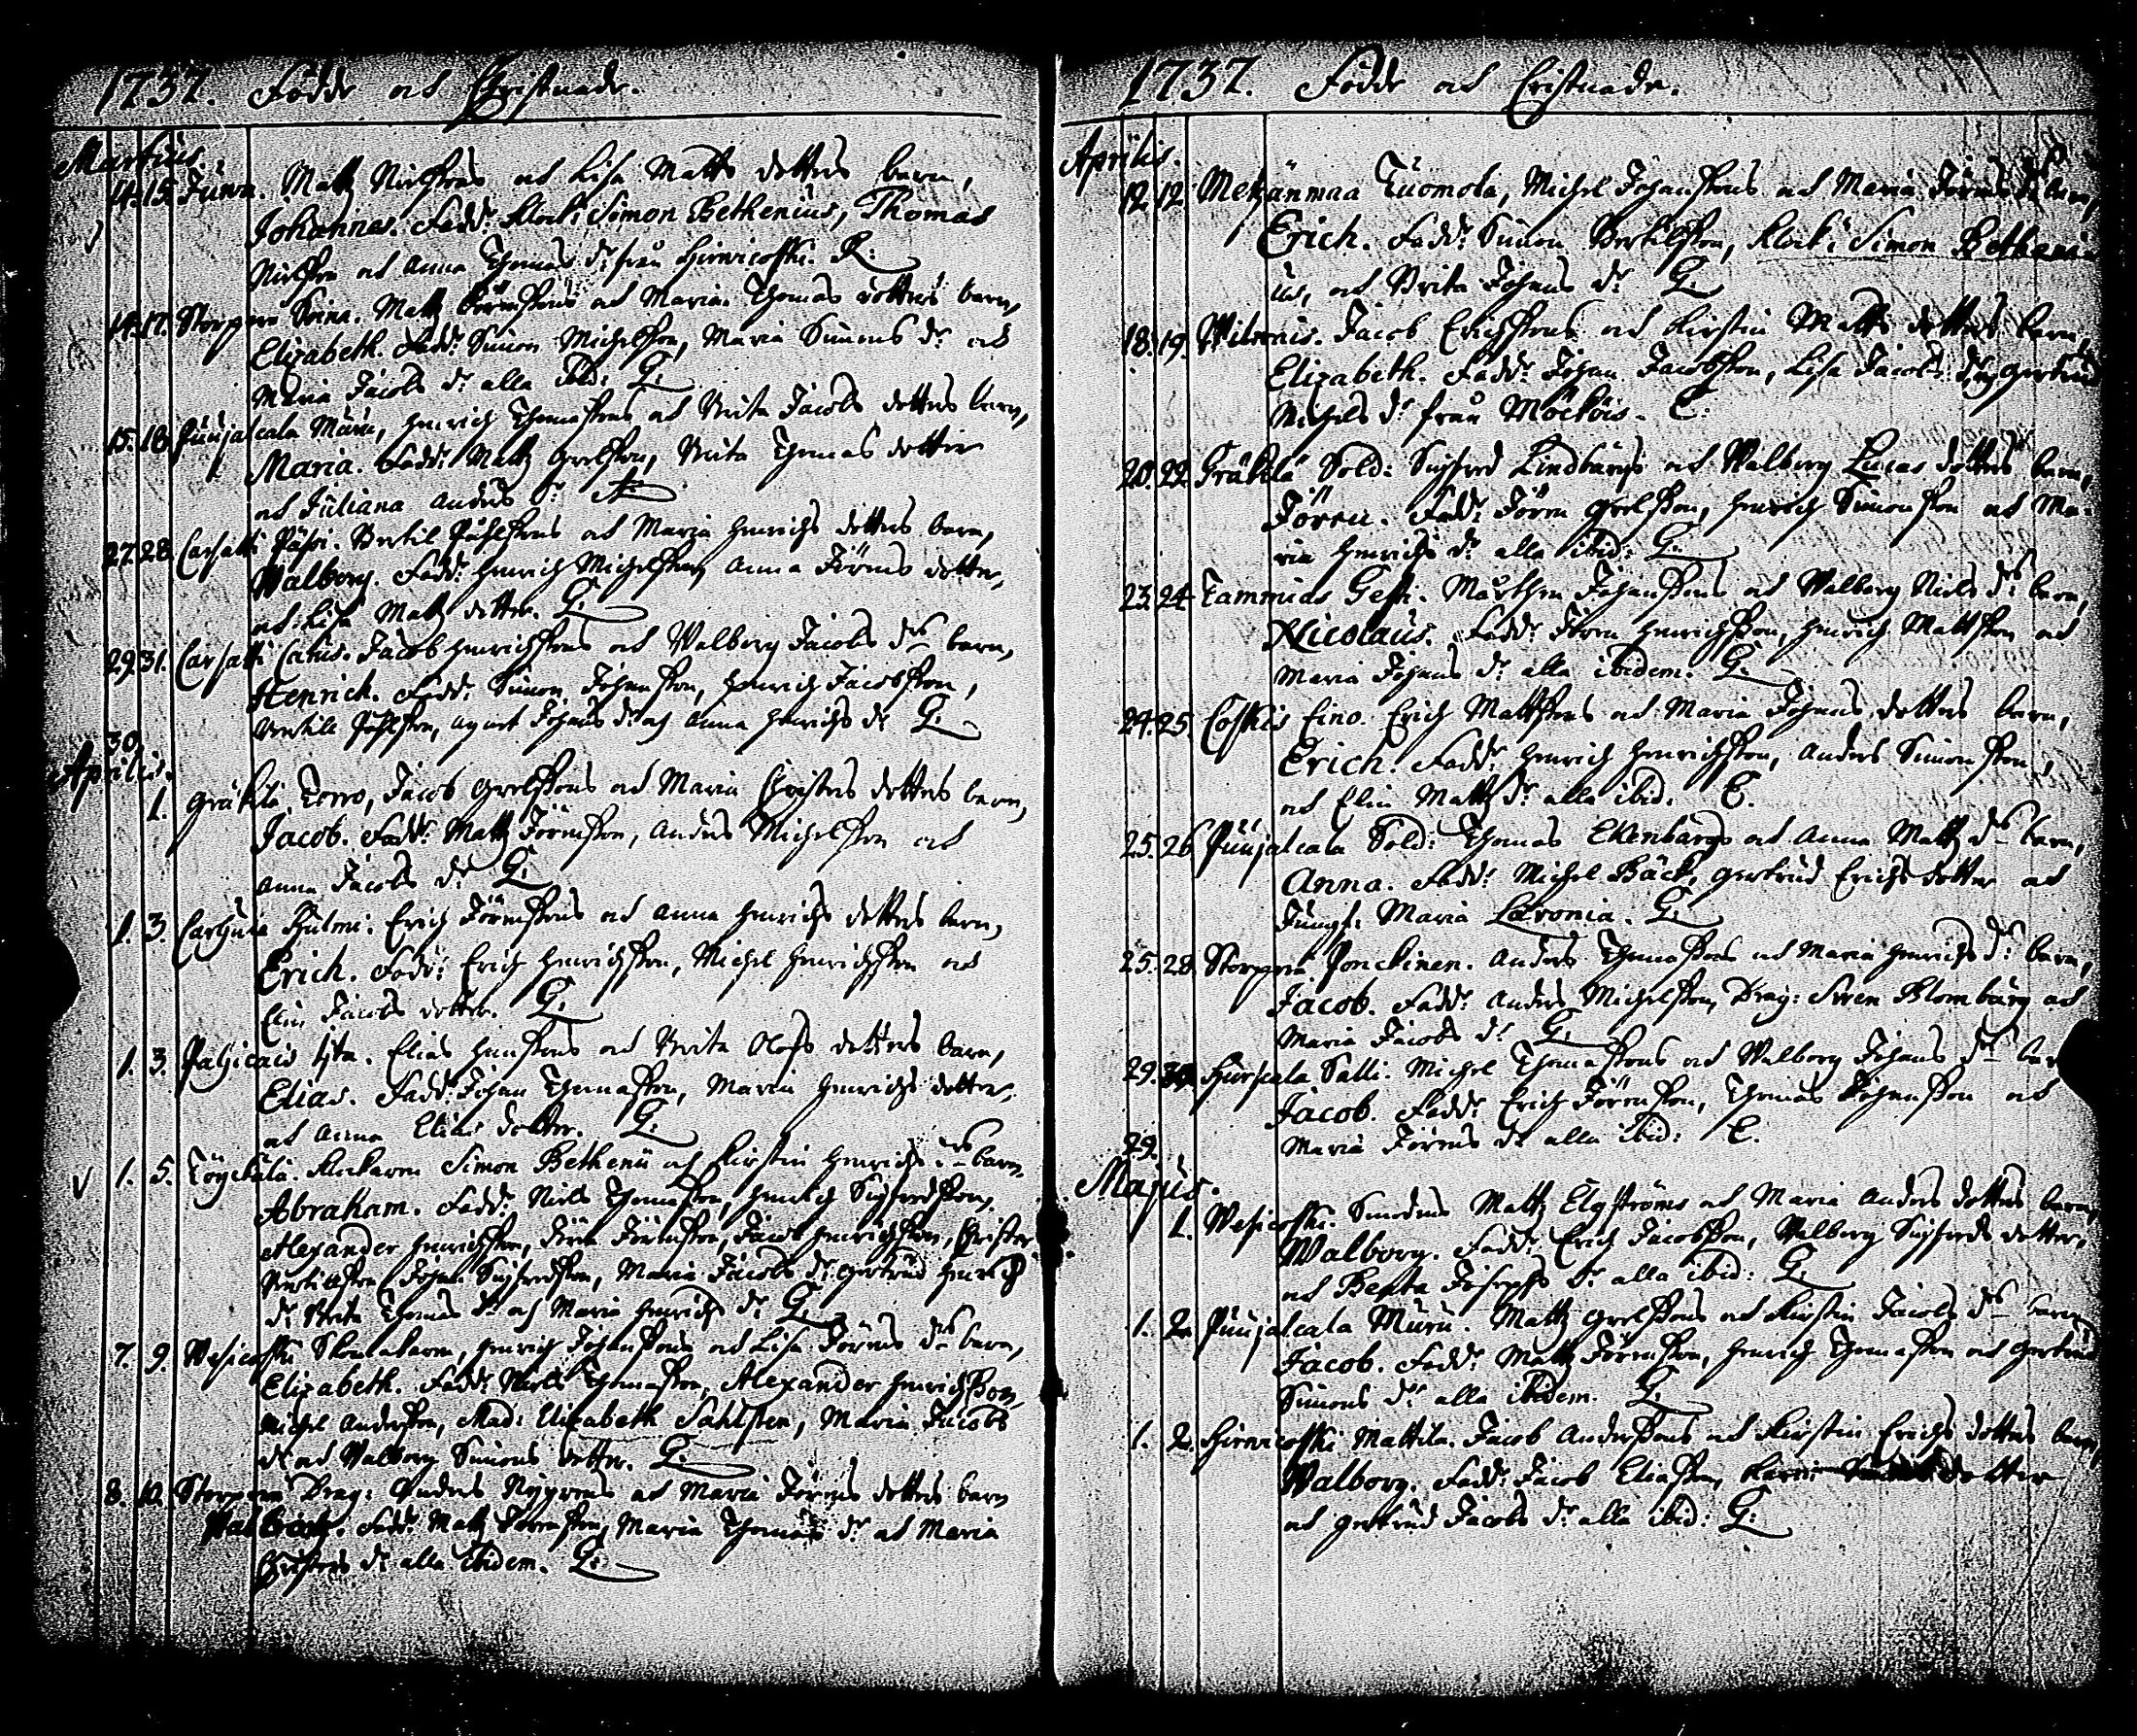 1737. Födde och Christnade.
Martius.
14. 15. Juva. Matz Nielssons och Lisa Matts dotters barn,
Johannes. Fadd: Klock: Simon Bethenius, Thomas
Nielsson och Anna Thomas dr från Hirvicoski. R:
14. 17. Storperä Matz Jörenssons och Maria Thomas dotters barn,
Elizabeth. Fadd: Simon Michelsson, Maria Simons dr och
Maria Jacobs dr alla ibid: G.
15. 18. Puujalcala Muru, Henrich Thomassons och Brita Jacobs dotters barn,
Maria. Fadd: Matz Grelsson, Brita Thomas dotter
och Juliana Anders dr
27. 28. Carhatti Päsi. Bertil Påhlssons och Maria Henrichs dotters barn,
Walborg. Fadd: Henrich Michelsson, Anna Jörens dotter,
och Lisa Matz dotter. G.
29. 31. Carhatti Jacob Henrichssons och Walborg Jacobs dr barn,
Henrich. Fadd: Simon Johansson, Henrich Jacobsson,
Bertill Påhlsson, Agnet Johans dr och Anna Henrichs dr G.
30.
Aprilis.
1. Gräkilä Torro, Jacob Grelssons och Maria Christers dotters barn,
Jacob. Fadd: Matz Jörensson, Anders Michelsson och
Anna Jacobs dr G.
1. 3. Carhula Hulmi. Erich Jörenssons och Anna Henrichs dotters barn,
Erich. Fadd: Erich Henrichsson, Michel Henrichsson och
Elin Jacobs dotter. G.
1. 3. Palhicais Elias Hanssons och Brita Olofs dotters barn,
Elias. Fadd: Johan Thomasson, Maria Henrichs dotter,
och Anna Elias dotter. G.
1. 5. Klockaren Simon Bethenii och Kirstin Henrichs drs barn,
Abraham. Fadd: Niels Thomasson, Henrich Sigfredsson,
Alexander Henrichsson, Jören Jörensson, Jacob Henrichsson, Christer
Bertillsson Johan Sigfredsson, Maria Jacobs dr Gertrud Henrichs
dr Brita Thomas dr och Maria Henrichs dr G.
7. 9. Vesicoski Skomakaren, Henrich Johanssons och Lisa Jörens drs barn,
Elizabeth. Fadd: Niels Thomasson, Alexander Henrichsson,
Michel Andersson, Mad: Elizabeth Sahlsten, Maria Jacobs
dr och Walborg Simons dotter. G.
8. 10. Storperä Drag: Anders Nygrens och Maria Jörens dotters barn
Walborg. Fadd: Matz Jörensson, Maria Thomas dr och Maria
Christers dr alla ibidem. G.
1737. Födde och Cristnade.
Aprilis.
12. 12. Metzänmaa Tuomola, Michel Johanssons och Maria Jörens dr barn,
Erich. Fadd: Simon Bertilsson, Klock: Simon Betheni-
us, och Brita Johans dr G.
18. 19. Jacob Erichssons och Kirstin Matts dotters barn,
Elizabeth. Fadd: Johan Jacobsson, Lisa Jacobs dr och Gertrud
Michels dr från Mäckäis. C.
20. 22. Gräkilä Sold: Sigfred Lindbärgs och Walborg Lucas dotters barn,
Jören. Fadd: Jören Grelsson, Henrich Simonsson och Ma-
ria Henrichs dr alla ibid: G.
23. 24. Tammiais Mårthen Johanssons och Walborg Niels drs barn,
Nicolaus. Fadd: Jören Henrichsson, Henrich Mattsson och
Maria Johans dr alla ibidem. G.
24. 25. Coskis Eino. Erich Mattssons och Maria Johans dotters barn,
Erich. Fadd: Henrich Henrichsson, Anders Simonsson,
och Elin Matz dr alla ibid. C.
25. 26. Puujalcala Sold: Thomas Ekenbärgs och Anna Matz drs barn,
Anna. Fadd: Michel Bäck, Gertrud Erichs dotter och
Jungf: Maria G.
25. 28. Storperä Ponckinen. Anders Thomassons och Maria Henrichs drs barn,
Jacob. Fadd: Anders Michelsson, Drag: Sven Blombärg och
Maria Jacobs dr G.
29. 30. Hurscala Salli. Michel Thomassons och Walborg Johans drs bar
Jacob. Fadd: Erich Jörensson, Thomas Johansson och
Maria Jörens dr alla ibid: C.
29.
Majus.
1. Vesicoski. Matz Elgströms och Maria Anders dotters barn,
Walborg. Fadd: Erich Jacobsson, Walborg Sigfreds dotter,
och Beata Josephs dr alla ibid: G.
1. 2. Puujalcala Muru. Matz Grelssons och Kirstin Jacobs drs barn
Jacob. Fadd: Matz Jörensson, Henrich Thomasson och Gertrud
Simons dr alla ibidem. G.
1. 2. Hirvicoski Mattila. Jacob Anderssons och Kirstin Erichs dotters barn,
Walborg. Fadd: Jacob Eliasson, Karin dotter
och Gertrud Jacobs dr alla ibid: G.